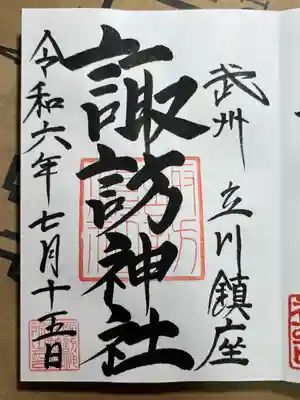 武州 立川鎮座
諏訪神社
令和六年七月十五日